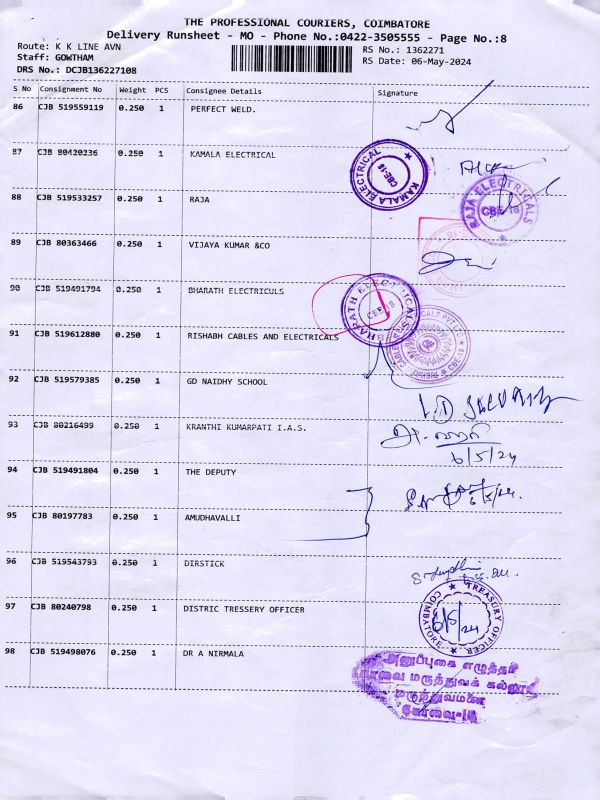 THE PROFESSIONAL COURIERS, COIMBATORE
Delivery Runsheet - MO - Phone No.:0422-3505555 - Page No.:8
Route: K K LINE AVN
RS No.: 1362271
Staff: GOWTHAM
RS Date: 06-May-2024
DRS No.: DCJB136227108
S No Consignment No Weight PCS Consignee Details Signature
86 CJB 519559119 0.250 1 PERFECT WELD.
87 CJB 80420236 0.250 1 KAMALA ELECTRICAL
KAMALA ELECTRICAL CBE-18
88 CJB 519533257 0.250 1 RAJA
RAJA ELECTRICALS CBE-18
89 CJB 80363466 0.250 1 VIJAYA KUMAR &CO
90 CJB 519491794 0.250 1 BHARATH ELECTRICULS
BHARATH ELECTRICALS CBE-18
91 CJB 519612880 0.250 1 RISHABH CABLES AND ELECTRICALS
92 CJB 519579385 0.250 1 GD NAIDHY SCHOOL
93 CJB 80216499 0.250 1 KRANTHI KUMARPATI I.A.S.
6/5/24
94 CJB 519491804 0.250 1 THE DEPUTY
6/5/24.
95 CJB 80197783 0.250 1 AMUDHAVALLI
96 CJB 519543793 0.250 1 DIRSTICK
97 CJB 80240798 0.250 1 DISTRIC TRESSERY OFFICER
TREASURY OFFICER COIMBATORE
6/5/24
98 CJB 519498076 0.250 1 DR A NIRMALA
அனுப்புகை எழுத்தர்
கோவை மருத்துவக் கல்லூரி
மருத்துவமனை
கோவை-18